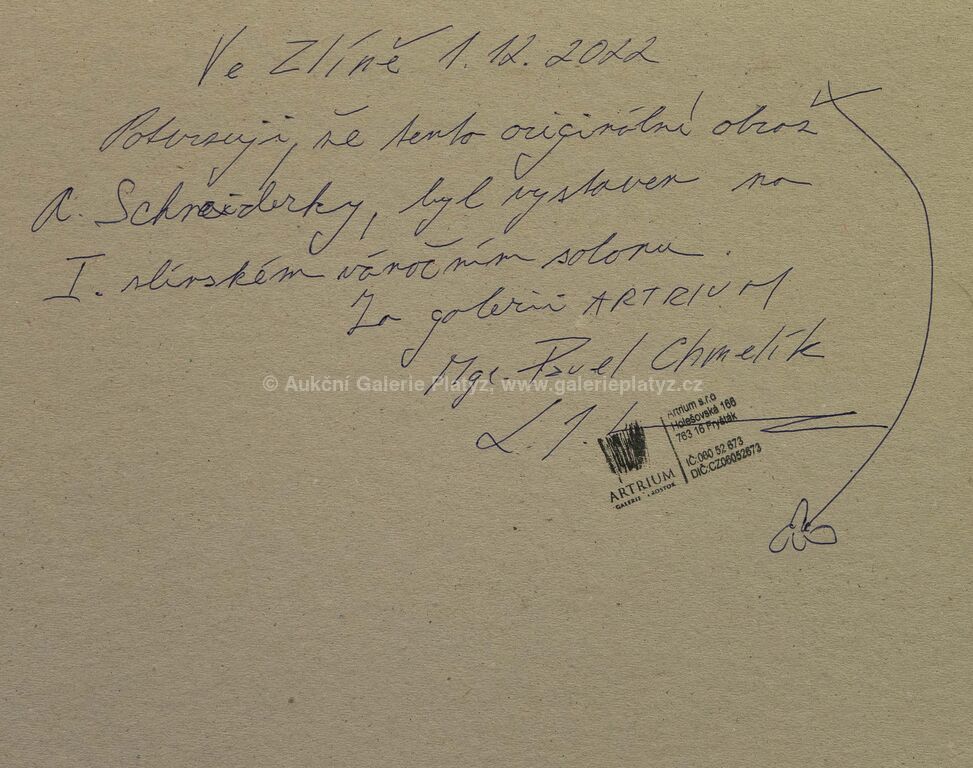 Ve Zlíně 1.12.2022
Potvrzuji, že tento originální obraz
A. Schneiderky, byl vystaven na
I. zlínském vánočním salonu.
Za galerii ARTRIUM
Mgr. Pavel Chmelík
© Aukční Galerie Platýz, www.galerieplatyz.cz
Artrium s.r.o
Holešovská 166
763 16 Fryšták
IČ:060 52 673
DIČ:CZ06052673
ARTRIUM
GALERIE